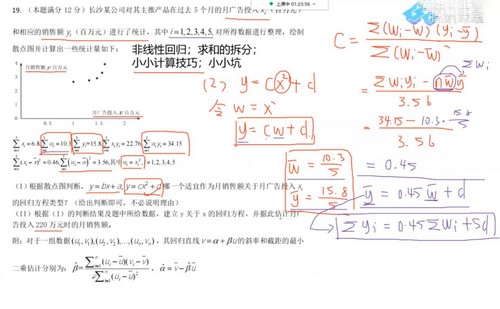 19. (本题满分 12 分) 长沙某公司对其主推产品在过去 5 个月的月广告投入 xᵢ (百万元)
和相应的销售额 yᵢ (百万元) 进行了统计,其中 i=1,2,3,4,5, 对所得数据进行整理,绘制
散点图并计算出一些统计量如下:
非线性回归;求和的拆分;
小小计算技巧;小小坑
月销售额 y/百万元
月广告投入 x/百万元
0.5 1 1.5 2
∑xᵢ=6.8, ∑wᵢ=10.3, ∑yᵢ=15.8, ∑xᵢyᵢ=22.76, ∑wᵢyᵢ=34.15
∑(xᵢ-x̄)²=0.46, ∑(wᵢ-w̄)²=3.56, 其中 wᵢ=xᵢ², i=1,2,3,4,5
(I) 根据散点图判断, y=bx+a, y=cx²+d 哪一个适宜作为月销售额关于月广告投入 xᵢ
的回归方程类型? (给出判断即可,不必说明理由)
(II) 根据 (I) 的判断结果及题中所给数据,建立 y 关于 x 的回归方程,并据此估计月广
告投入 220 万元时的月销售额.
附:对于一组数据(u₁,v₁),(u₂,v₂),…,(uₙ,vₙ), 其回归直线 v=α+βu 的斜率和截距的最小
二乘估计分别为: β̂=∑(uᵢ-ū)(vᵢ-v̄)/∑(uᵢ-ū)², α̂=v̄-β̂ū
(2) y=cx²+d
令 w=x²
y=cw+d
w̄=10.3/5
ȳ=15.8/5
C=∑(wᵢ-w̄)(yᵢ-ȳ)/∑(wᵢ-w̄)²
=∑wᵢyᵢ-nw̄ȳ/3.56
=34.15-10.3·15.8/5/3.56
=0.45
ȳ=0.45w̄+d
∑yᵢ=0.45∑wᵢ+5d